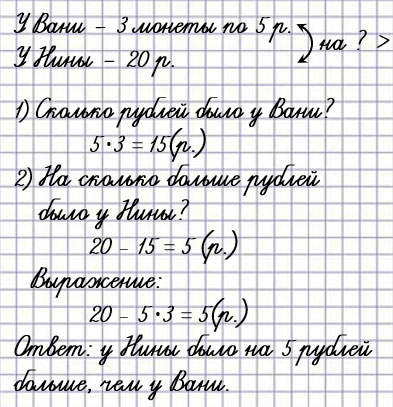 У Вани – 3 монеты по 5 р.
У Нины – 20 р.
на ? >
1) Сколько рублей было у Вани?
5·3 = 15(р.)
2) На сколько больше рублей
было у Нины?
20 – 15 = 5 (р.)
Выражение:
20 – 5·3 = 5(р.)
Ответ: у Нины было на 5 рублей
больше, чем у Вани.